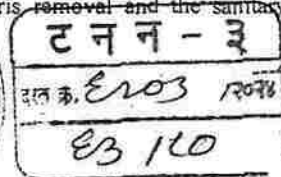 ris removal and the sanitary
ट न न - ३
दस्त क्र. ६२०३ /२०२४
६३ /८०